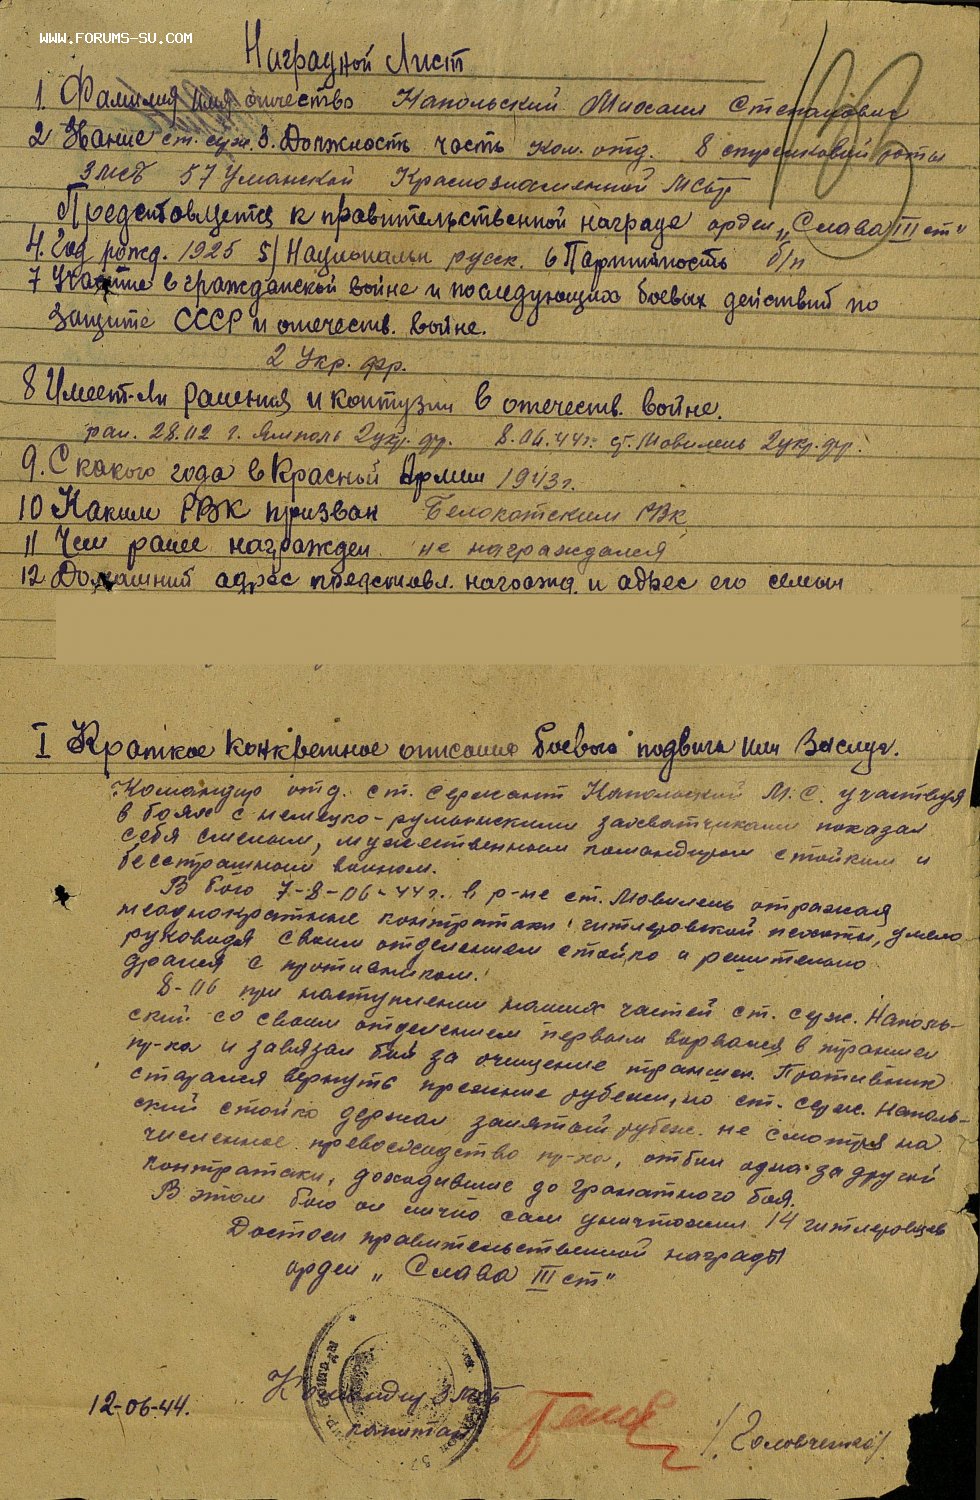 WWW.FORUMS-SU.COM
Наградной Лист
1. Фамилия имя отчество Напольский Михаил Степанович
2 Звание ст. серж. 3. Должность часть ком. отд. 8 стрелковой роты
3 МСБ 57 Уманской Краснознаменной МСбр
Представляется к правительственной награде орден „Слава III ст"
4. Год рожд. 1925 5) Национальн русск. 6 Партийность б/п
7 Участие в гражданской войне и последующих боевых действий по
защите СССР и отечеств. войне.
2 Укр. фр.
8 Имеет-ли ранения и контузии в отечеств. войне.
ран. 28.02 г. Ямполь 2 укр. фр. 8.06.44 г. ст. Мовилень 2 укр. фр.
9. С какого года в Красной Армии 1943 г.
10 Каким РВК призван Белокатским РВК
11 Чем ранее награжден не награждался
12 Домашний адрес представл. награжд. и адрес его семьи
I Краткое конкретное описание боевого подвига или Заслуг.
Командир отд. ст. сержант Напольский М.С. участвуя
в боях с немецко-румынскими захватчиками показал
себя смелым, мужественным командиром стойким и
бесстрашным воином.
В бою 7-8-06-44 г. в р-не ст. Мовилень отражая
неоднократные контратаки гитлеровской пехоты, умело
руководя своим отделением стойко и решительно
дрался с противником.
8-06 при наступлении наших частей ст. серж. Наполь-
ский со своим отделением первым ворвался в траншеи
пр-ка и завязал бой за очищение траншеи. Противник
старался вернуть прежние рубежи, но ст. серж. Наполь-
ский стойко держал занятый рубеж не смотря на
численное превосходство пр-ка, отбил одна за другой
контратаки, доходившие до гранатного боя.
В этом бою он лично сам уничтожил 14 гитлеровцев
Достоин правительственной награды
орден „Слава III ст"
12-06-44. Командир 3 МСБ
капитан /Головченко/